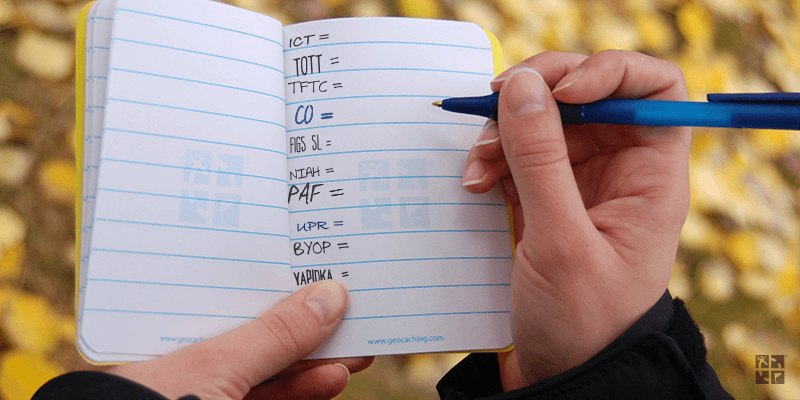 ICT =
TOTT =
TFTC =
CO =
FIGS SL =
NIAH =
PAF =
UPR =
BYOP =
YAPIDKA =
www.geocaching.com